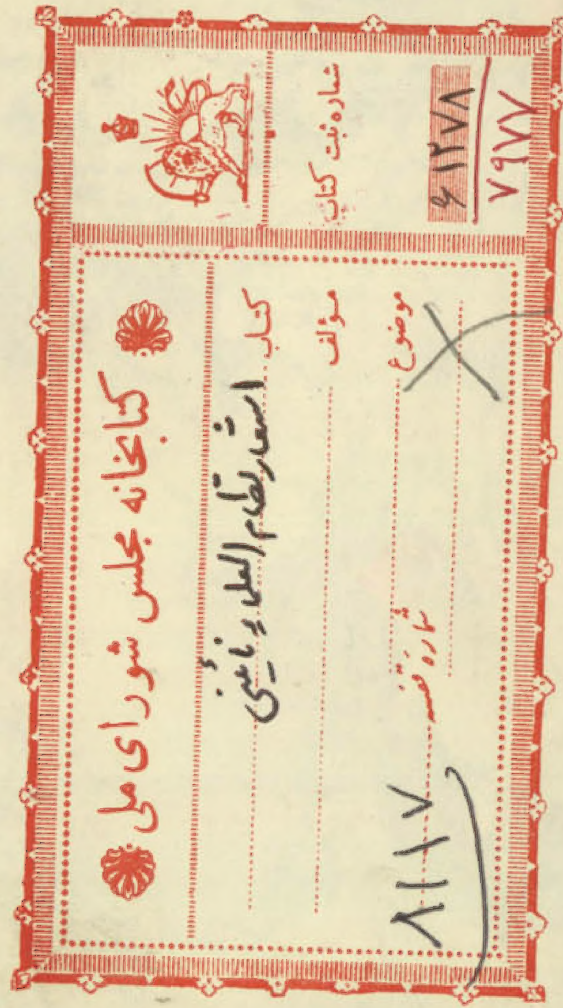 کتابخانه مجلس شورای ملی
کتاب اشعار نظام العلماء نائینی
مؤلف
موضوع
شماره قفسه ۸۱۱۷
شماره ثبت کتاب
۶۱۲۷۸
۷۹۷۷